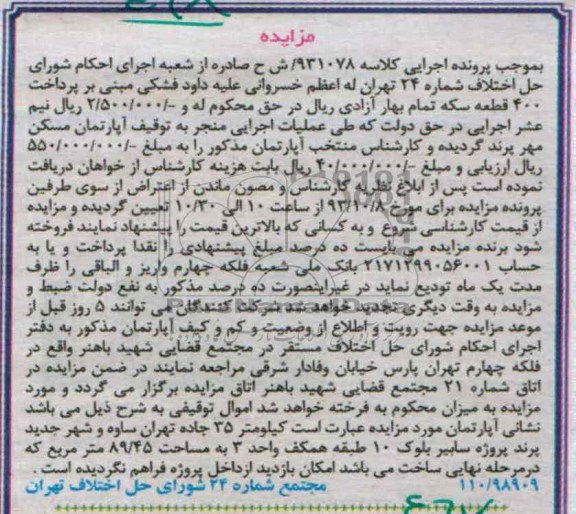 مزایده
بموجب پرونده اجرایی کلاسه ۹۳۱۰۷۸/ش ح صادره از شعبه اجرای احکام شورای
حل اختلاف شماره ۲۴ تهران له اعظم خسروانی علیه داود فشکی مبنی بر پرداخت
۴۰۰ قطعه سکه تمام بهار آزادی ریال در حق محکوم له و -/۲/۵۰۰/۰۰۰ ریال نیم
عشر اجرایی در حق دولت که طی عملیات اجرایی منجر به توقیف آپارتمان مسکن
مهر پرند گردیده و کارشناس منتخب آپارتمان مذکور را به مبلغ -/۵۵۰/۰۰۰/۰۰۰
ریال ارزیابی و مبلغ -/۴۰/۰۰۰/۰۰۰ ریال بابت هزینه کارشناس از خواهان دریافت
نموده است پس از ابلاغ نظریه کارشناس و مصون ماندن از اعتراض از سوی طرفین
پرونده مزایده برای مورخ ۹۳/۱۰/۸ از ساعت ۱۰ الی ۱۰/۳۰ تعیین گردیده و مزایده
از قیمت کارشناسی شروع و به کسانی که بالاترین قیمت را پیشنهاد نمایند فروخته
شود برنده مزایده می بایست ده درصد مبلغ پیشنهادی را نقدا پرداخت و یا به
حساب ۲۱۷۱۲۹۹۰۵۶۰۰۱ بانک ملی شعبه فلکه چهارم واریز و الباقی را ظرف
مدت یک ماه تودیع نماید در غیراینصورت ده درصد مذکور به نفع دولت ضبط و
مزایده به وقت دیگری تجدید خواهد شد شرکت کنندگان می توانند ۵ روز قبل از
موعد مزایده جهت رویت و اطلاع از وضعیت و کم و کیف آپارتمان مذکور به دفتر
اجرای احکام شورای حل اختلاف مستقر در مجتمع قضایی شهید باهنر واقع در
فلکه چهارم تهران پارس خیابان وفادار شرقی مراجعه نمایند در ضمن مزایده در
اتاق شماره ۲۱ مجتمع قضایی شهید باهنر اتاق مزایده برگزار می گردد و مورد
مزایده به میزان محکوم به فرخته خواهد شد اموال توقیفی به شرح ذیل می باشد
نشانی آپارتمان مورد مزایده عبارت است کیلومتر ۳۵ جاده تهران ساوه و شهر جدید
پرند پروژه سابیر بلوک ۱۰ طبقه همکف واحد ۳ به مساحت ۸۹/۴۵ متر مربع که
درمرحله نهایی ساخت می باشد امکان بازدید ازداخل پروژه فراهم نگردیده است .
۱۱۰/۹۸۹۰۹ مجتمع شماره ۲۴ شورای حل اختلاف تهران